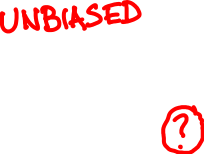 UNBIASED
?